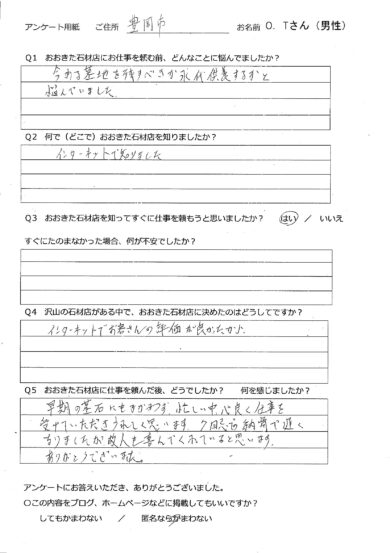 アンケート用紙 ご住所 豊岡市 お名前 O.Tさん（男性）
Q1 おおきた石材店にお仕事を頼む前、どんなことに悩んでましたか？
今ある墓地を残すべきか永代供養するかと
悩んでいました
Q2 何で（どこで）おおきた石材店を知りましたか？
インターネットで知りました
Q3 おおきた石材店を知ってすぐに仕事を頼もうと思いましたか？ はい / いいえ
すぐにたのまなかった場合、何が不安でしたか？
Q4 沢山の石材店がある中で、おおきた石材店に決めたのはどうしてですか？
インターネットでお客さんの評価が良かったから
Q5 おおきた石材店に仕事を頼んだ後、どうでしたか？ 何を感じましたか？
早期の墓石にもかかわず、忙しい中心良く仕事を
受けていただきうれしく思います。
納骨で遅く
なりましたが故人も喜んでくれていると思います。
ありがとうございました。
アンケートにお答えいただき、ありがとうございました。
○この内容をブログ、ホームページなどに掲載してもいいですか？
してもかまわない / 匿名ならかまわない